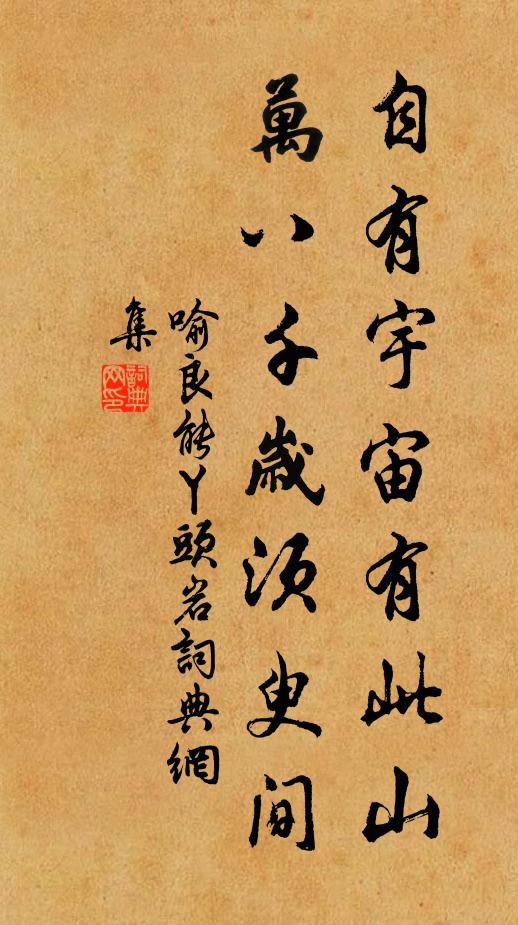 自有宇宙有此山
萬八千歲須臾間
喻良能丫頭岩詞典網
集
詞典網印